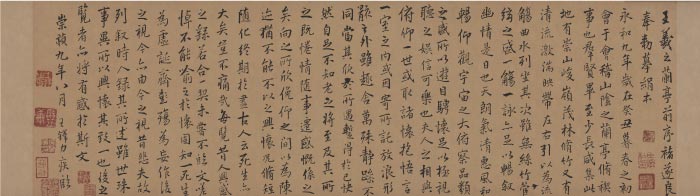 王羲之蘭亭前序褚遂良
奉勅摹絹本
永和九年歲在癸丑暮春之初
會于會稽山陰之蘭亭脩稧
事也羣賢畢至少長咸集此
地有崇山峻嶺茂林脩竹又有
清流激湍暎帶左右引以為流
觴曲水列坐其次雖無絲竹管
絃之盛一觴一詠亦足以暢叙
幽情是日也天朗氣清惠風和
暢仰觀宇宙之大俯察品類
之盛所以遊目騁懷足以極視
聽之娛信可樂也夫人之相與
俯仰一世或取諸懷抱悟言
一室之內或因寄所託放浪形
骸之外雖趣舍萬殊靜躁不
同當其欣於所遇暫得於己快
然自足不知老之將至及其所
之既惓情隨事遷感慨係之
矣向之所欣俛仰之間以為陳
迹猶不能不以之興懷況脩短
隨化終期於盡古人云死生亦
大矣豈不痛哉每攬昔人興感
之由若合一契未嘗不臨文嗟
悼不能喻之於懷固知一死生
為虛誕齊彭殤為妄作後
之視今亦由今之視昔悲夫故
列敘時人錄其所述雖世殊
事異所以興懷其致一也後之
覽者亦將有感於斯文
崇禎九年八月王鐸力疾臨